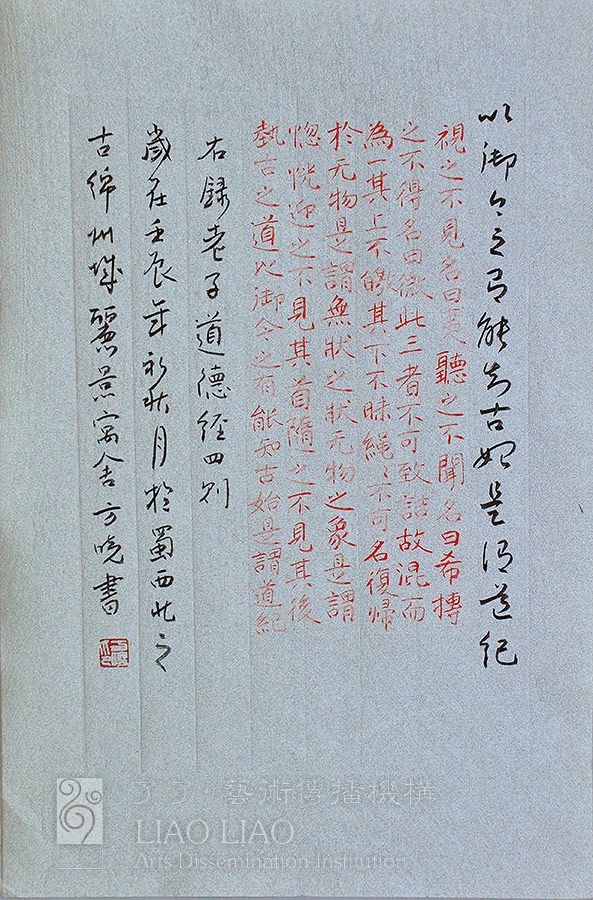 以御今之有能知古始是謂道紀
視之不見名曰夷聽之不聞名曰希搏
之不得名曰微此三者不可致詰故混而
為一其上不皦其下不昧繩〻不可名復歸
於无物是謂無狀之狀无物之象是謂
惚恍迎之不見其首隨之不見其後
執古之道以御今之有能知古始是謂道紀
右録老子道德經四則
歲在壬辰年初秋月於蜀西北之
古綿州城麗景寓舍方曉書
了了·藝術傳播機構
LIAO LIAO
Arts Dissemination Institution